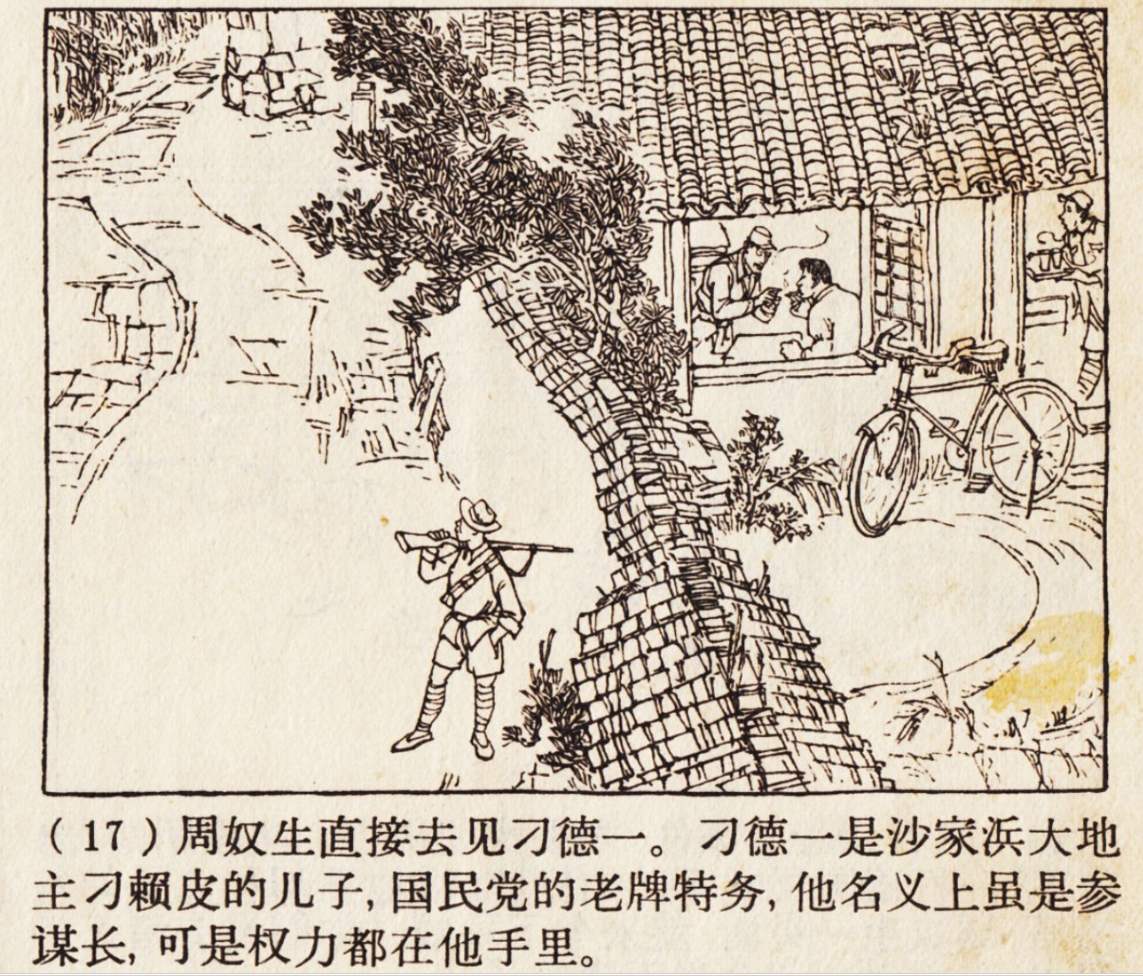 （17）周奴生直接去见刁德一。刁德一是沙家浜大地
主刁赖皮的儿子，国民党的老牌特务，他名义上虽是参
谋长，可是权力都在他手里。